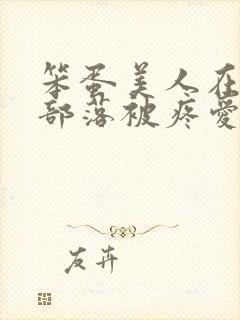 笨蛋美人在
部落被疼愛
友卉